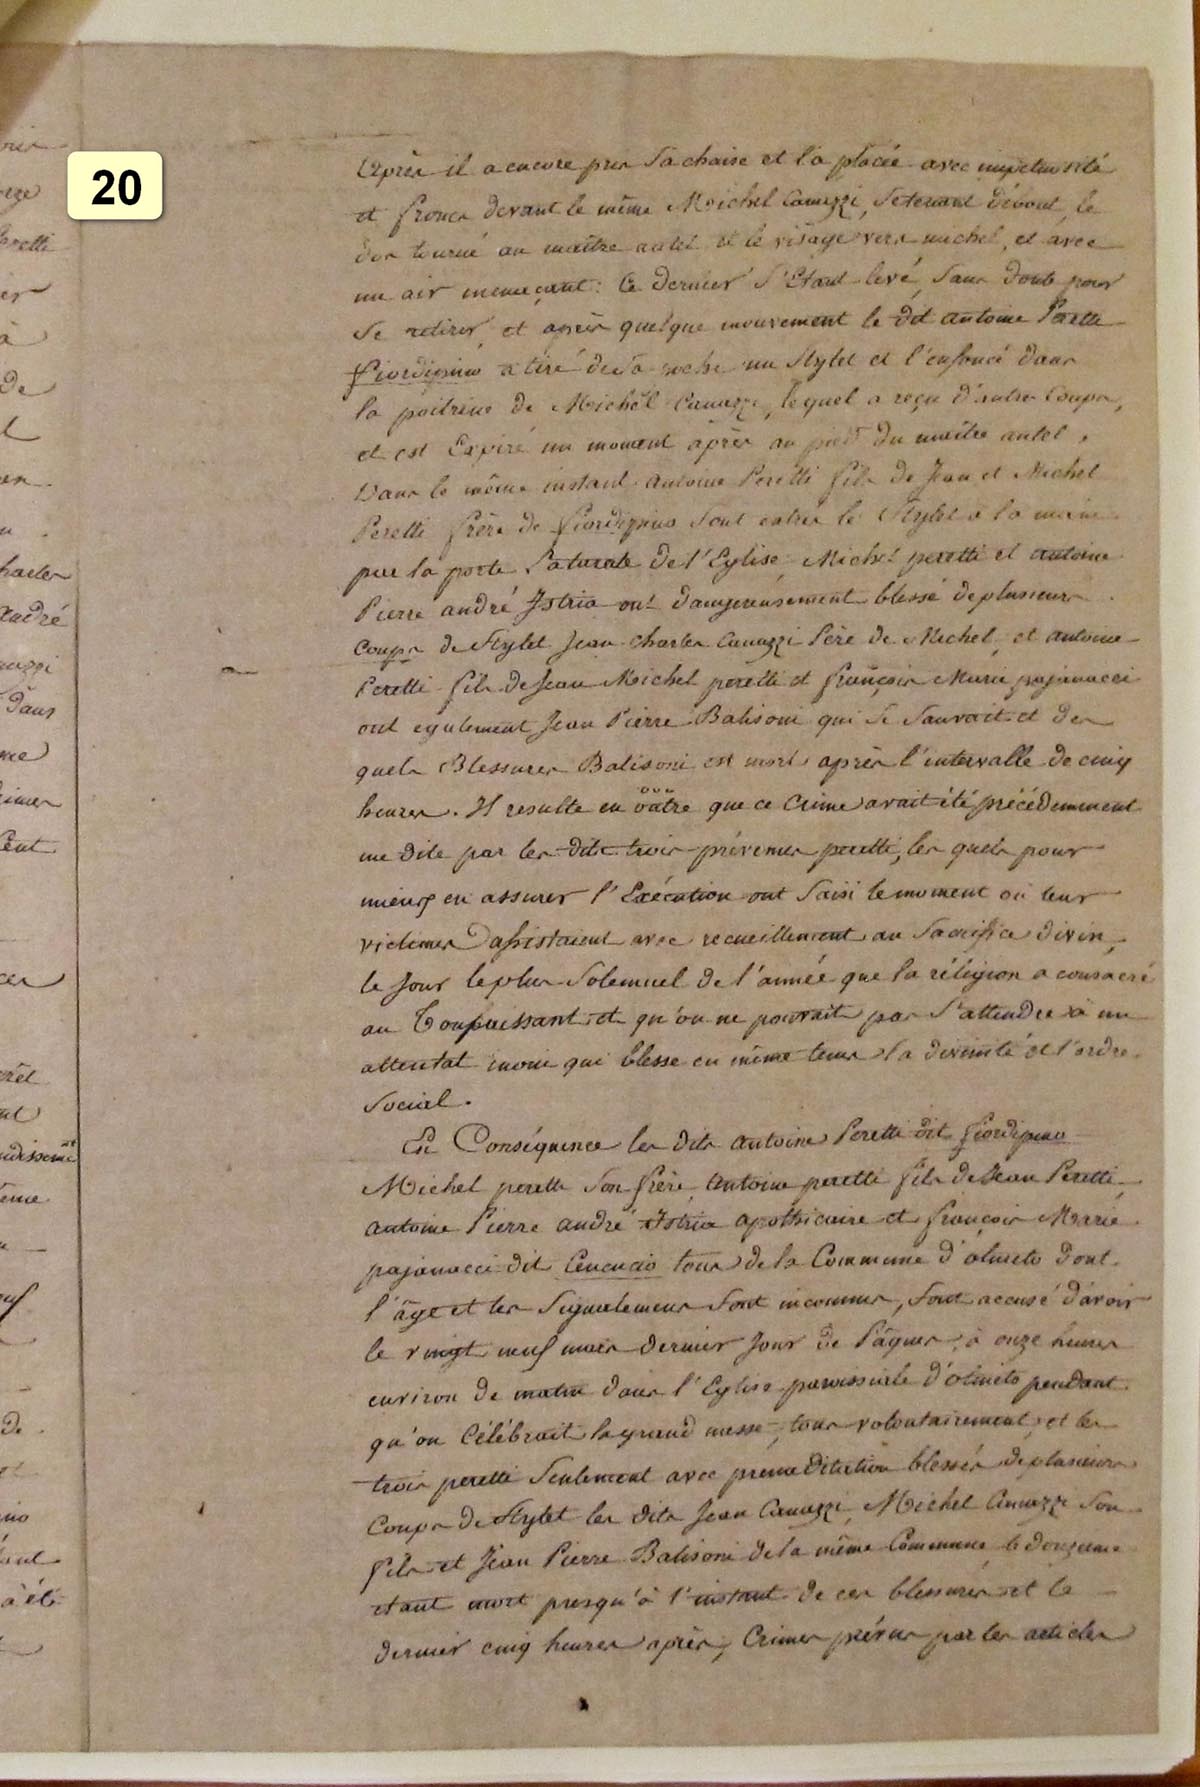 20
Après il a encore pris sa chaise et l'a placée avec impetuosité
et fronca devant le même Michel Canazzi, se tenant débout, le
dos tourné au maître autel et le visage vers michel, et avec
un air menaçant: Ce dernier s'Etant levé, sans doute pour
Se retirer, et après quelque mouvement le dit antoine Peretti
fiordispino a tiré de sa poche un Stylet et l'enfoncé dans
la poitrine de Michel Canazzi, lequel a reçu d'autres Coups,
et est Expiré un moment après au pied du maître autel,
Dans le même instant antoine Peretti fils de Jean et Michel
Peretti frère de fiordispino sont entrés le Stylet à la main
par la porte Latérale de l'Eglise Michel peretti et antoine
Pierre andré Istria ont dangereusement blessé de plusieurs
Coups de Stylet Jean Charles Canazzi Père de Michel, et antoine
Peretti fils de Jean Michel peretti et françois Marie pajanacci
ont egalement Jean Pierre Balisoni qui se Sauvait et des
quels Blessures Balisoni est mort après l'intervalle de cinq
heures. Il resulte en outre que ce Crime avait été précédemment
me dité par les dits trois prévenus peretti, les quels pour
mieux en assurer l'Exécution ont saisi le moment où leur
victimes assistaient avec recueillement au Sacrifice divin,
le Jour le plus Solemnel de l'année que la réligion a consacré
au Toupuissant et qu'on ne pouvait pas s'attendre à un
attentat inoui qui blesse en même tems la divinité et l'ordre
Social.
En Conséquence les dits antoine Peretti dit fiordispino
Michel peretti Son frère, antoine peretti fils de Jean Peretti
antoine Pierre andré Istria apothicaire et françois Marie
pajanacci dit Cencucio tous de la Commune d'olmeto dont
l'âge et les Signalemens sont inconnus, sont accusé d'avoir
le vingt neuf mars dernier Jour de Pâques, à onze heures
environ de matin dans l'Eglise paroissiale d'olmeto pendant
qu'on Célébrait la grand messe, tous volontairement, et les
trois peretti Seulement avec premeditation blessés de plusieurs
Coups de Stylet les dits Jean Canazzi, Michel Canazzi son
fils et Jean Pierre Balisoni de la même Commune, le douzieme
etant mort presqu'à l'instant de ces blessures et le
dernier cinq heures après, Crimes prévus par les articles